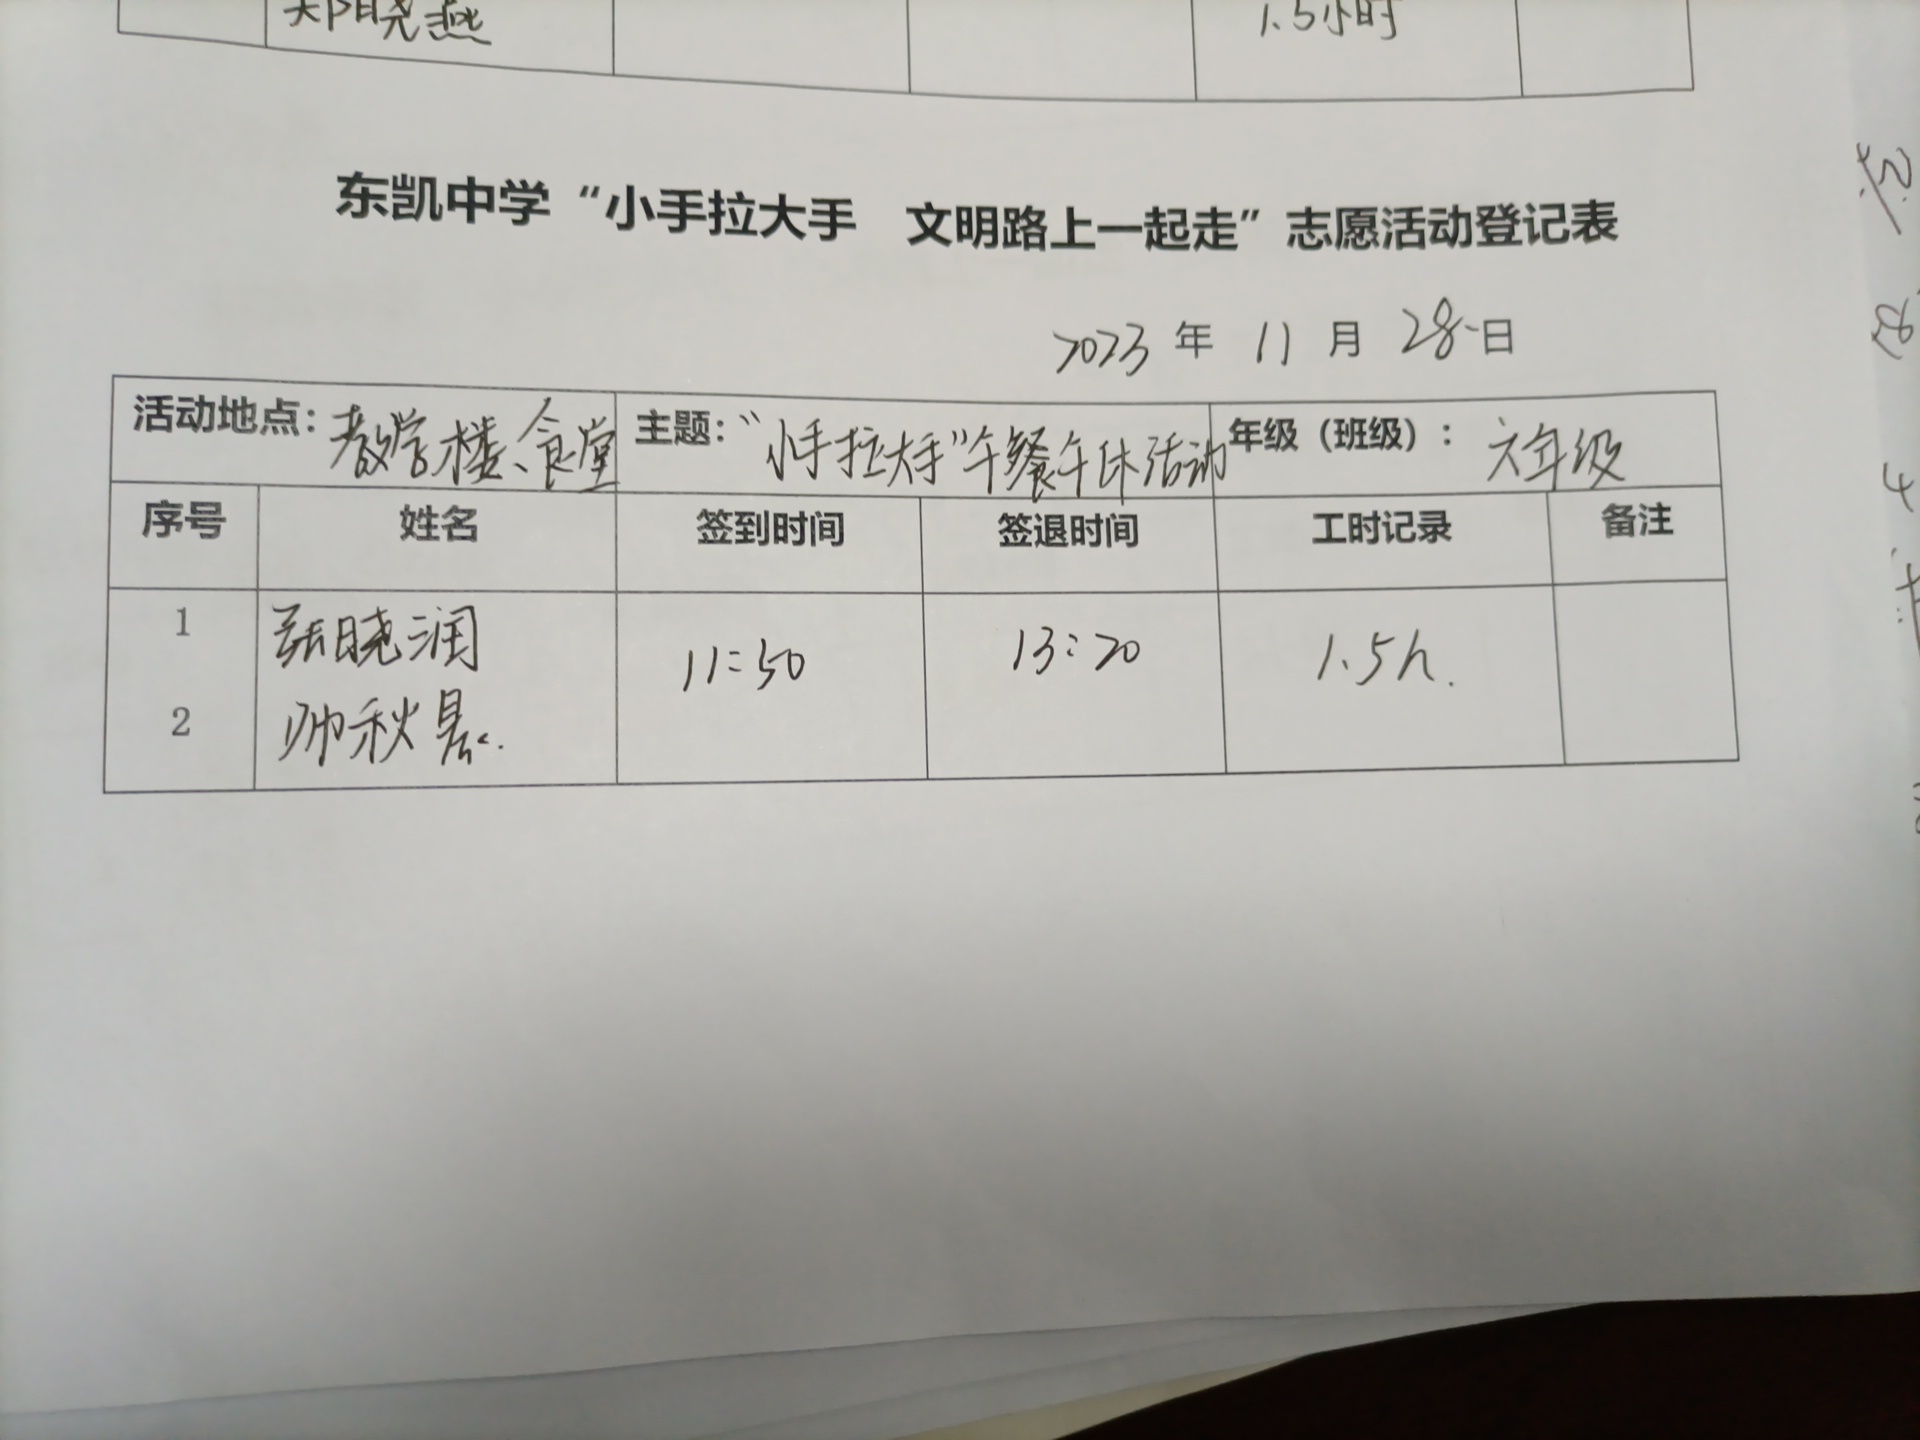 郑晓燕 1.5小时
东凯中学“小手拉大手 文明路上一起走”志愿活动登记表
2023 年 11 月 28 日
活动地点：教学楼、食堂 主题：“小手拉大手”午餐午休活动 年级（班级）：六年级
序号 姓名 签到时间 签退时间 工时记录 备注
1 张晓润 11:50 13:20 1.5h.
2 帅秋景